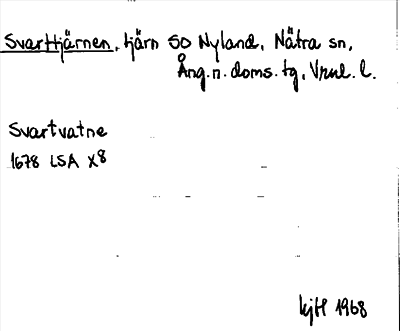 Svarttjärnen, tjärn SO Nyland, Nätra sn,
Ång.n.doms.tg, Vnrl. l.
Svartvatne
1678 LSA X8
kjtl 1968